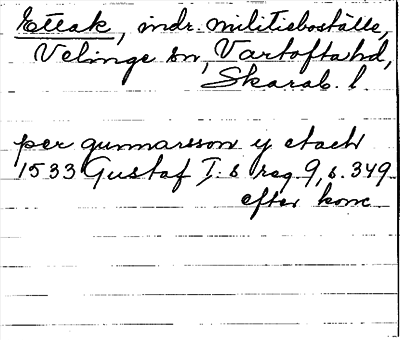 Ettak, indr. militieboställe,
Velinge sn, Vartofta hd,
Skarab. l.
per gunnarsson y etach
1533 Gustaf I.s reg 9, s. 349
efter konc